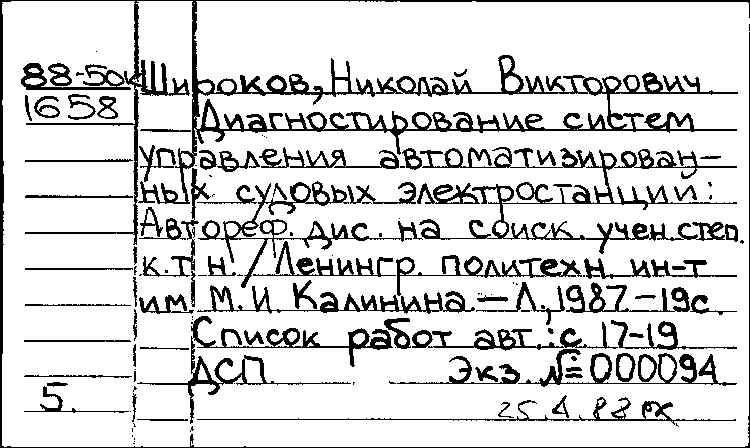 88-50к Широков, Николай Викторович
1658 Диагностирование систем
управления автоматизирован-
ных судовых электростанций:
Автореф. дис. на соиск. учен. степ.
к.т н. / Ленингр. политехн. ин-т
им. М. И. Калинина. — Л., 1987. — 19с.
Список работ авт.: с. 17-19.
ДСП. Экз. №=000094.
5. 25.4.88